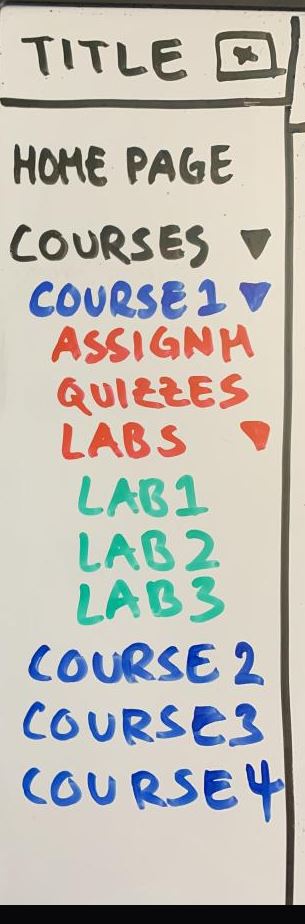 TITLE X
HOME PAGE
COURSES ▼
COURSE 1 ▼
ASSIGNM
QUIZZES
LABS ▼
LAB1
LAB2
LAB3
COURSE 2
COURSE3
COURSE4